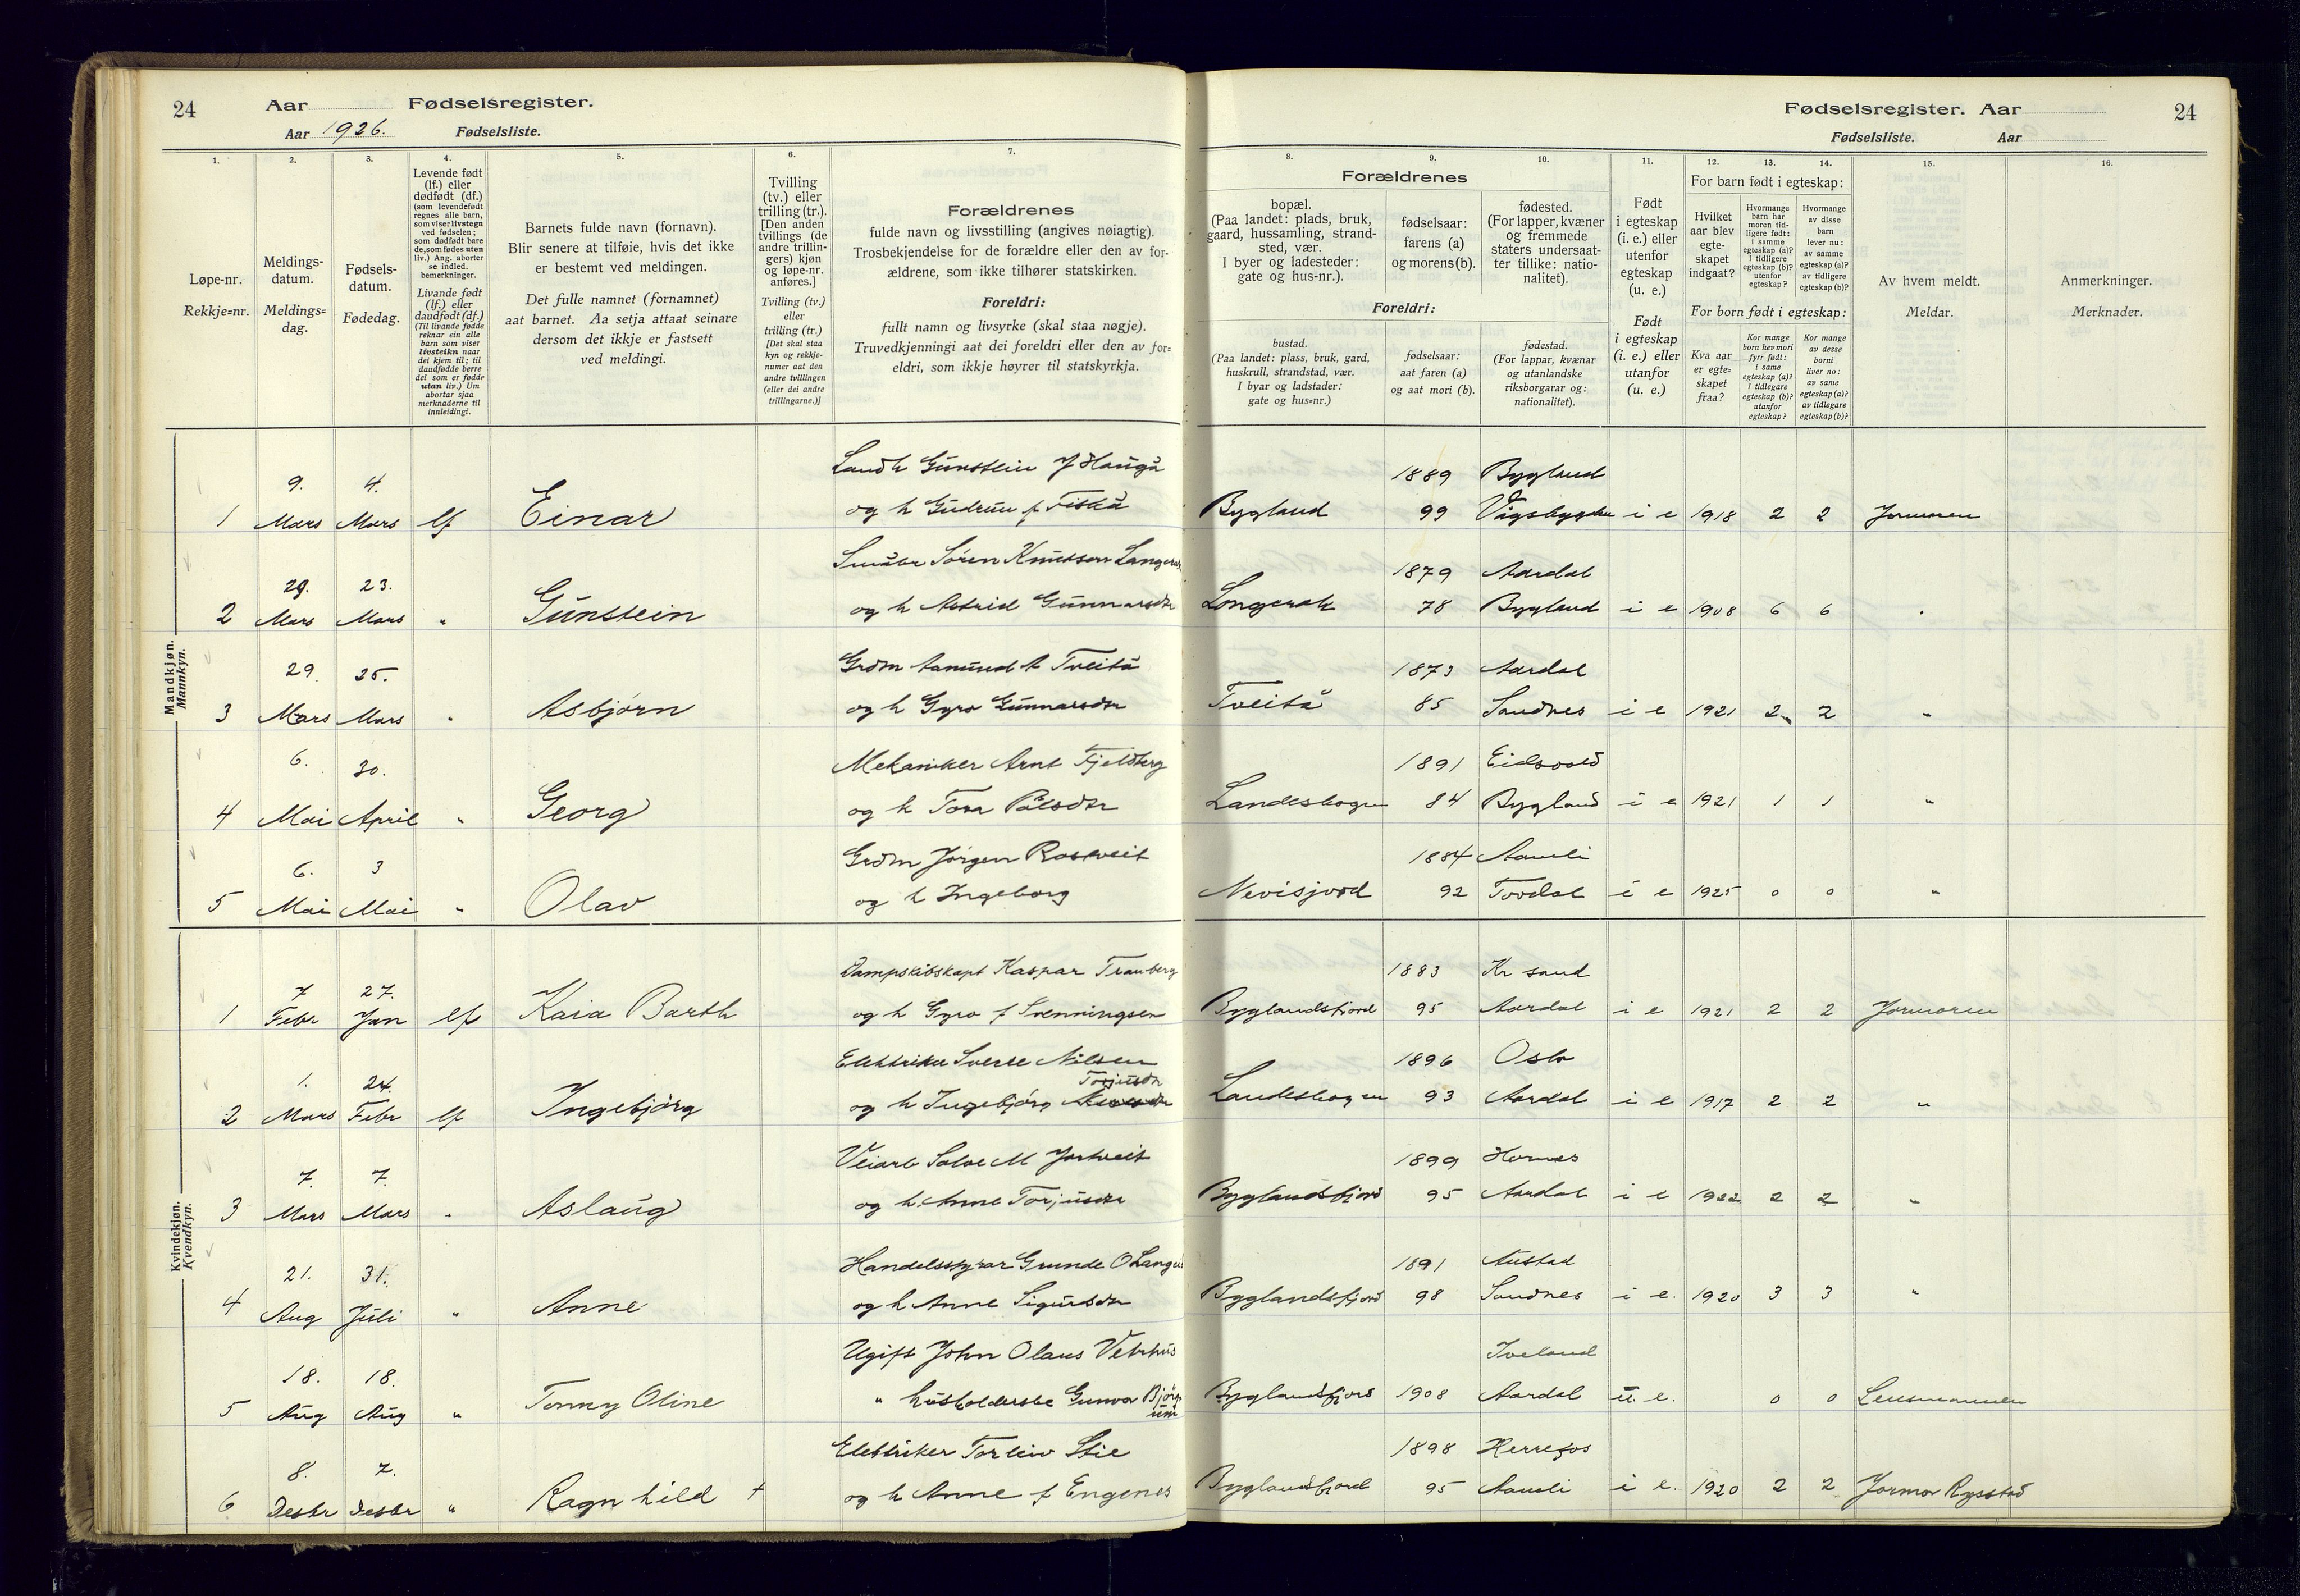 24 Aar Fødselsregister.
Aar 1926. Fødselsliste.
Fødselsregister. Aar 24
Fødselsliste. Aar
1. 2. 3. 4. 5. 6. 7. 8. 9. 10. 11. 12. 13. 14. 15. 16.
Løpe-nr.
Rekkje=nr.
Meldings-
datum.
Meldings=
dag.
Fødsels-
datum.
Fødedag.
Levende født
(lf.) eller
dødfødt (df.)
(som levendefødt
regnes alle barn,
som viser livstegn
ved fødselen;
som dødfødt bare
de, som fødes uten
liv.) Ang. aborter
se indled.
bemerkninger.
Livande født
(lf.) eller
daudfødt (df.)
(Til livande fødde
reknar ein alle
barn som viser
livsteikn naar
dei kjem til; til
daudfødde berre
dei som er fødde
utan liv.) Um
abortar sjaa
merknaderne til
innleidingi.
Barnets fulde navn (fornavn).
Blir senere at tilføie, hvis det ikke
er bestemt ved meldingen.
Det fulle namnet (fornamnet)
aat barnet. Aa setja attaat seinare
dersom det ikkje er fastsett
ved meldingi.
Tvilling
(tv.) eller
trilling (tr.).
[Den anden
tvillings (de
andre trillin-
gers) kjøn
og løpe-nr.
anføres.]
Tvilling (tv.)
eller
trilling (tr.)
[Det skal staa
kyn og rekkje-
numer aat den
andre tvillingen
(eller dei andre
trillingarne.)]
Forældrenes
fulde navn og livsstilling (angives nøiagtig).
Trosbekjendelse for de forældre eller den av for-
ældrene, som ikke tilhører statskirken.
Foreldri:
fullt namn og livsyrke (skal staa nøgje).
Truvedkjenningi aat dei foreldri eller den av for=
eldri, som ikkje høyrer til statskyrkja.
Forældrenes
bopæl.
(Paa landet: plads, bruk,
gaard, hussamling, strand-
sted, vær.
I byer og ladesteder:
gate og hus-nr.).
fødselsaar:
farens (a)
og morens (b).
fødested.
(For lapper, kvæner
og fremmede
staters undersaat-
ter tillike: natio-
nalitet).
Foreldri:
bustad.
(Paa landet: plass, bruk, gard,
huskrull, strandstad, vær.
I byar og ladstader:
gate og hus=nr.)
fødselsaar:
aat faren (a)
og aat mori (b).
fødestad.
(For lappar, kvænar
og utanlandske
riksborgarar og:
nationalitet).
Født
i egteskap
(i. e.) eller
utenfor
egteskap
(u. e.)
Født
i egteskap
(i. e.) eller
utanfor
(u. e.)
For barn født i egteskap:
Hvilket
aar blev
egte-
skapet
indgaat?
Hvormange
barn har
moren tid-
ligere født:
i samme
egteskap (a)?
i tidligere
egteskap (b)?
utenfor
egteskap?
Hvormange
av disse
barn
lever nu:
av samme
egteskap (a)?
av tidligere
egteskap (b)?
For born født i egteskap:
Kva aar
er egte=
skapet
fraa?
Kor mange
born hev mori
fyrr født:
i same
egteskap (a)?
i tidlegare
egteskap (b)?
utanfor
egteskap?
Kor mange
av desse
borni
liver no:
av same
egteskap (a)?
av tidlegare
egteskap (b)?
Av hvem meldt.
Meldar.
Anmerkninger.
Merknader.
Mandkjøn.
Mannkyn.
9. 4. Gunstein J Haugå 1889 Bygland
1 Mars Mars lf Einar og h Gudrun f Fiskå Bygland 99 Vågsbygden i e 1918 2 2 Jormoren
29. 23. Søren Knutson 1879 Aardal
2 Mars Mars " Gunstein og h Astrid Gunnarsdtr Longerak 78 Bygland i e 1908 6 6 "
29. 25. Grdm Aamund A Tveitå 1873 Aardal
3 Mars Mars " Asbjørn og h Gyro Gunnarsdtr Tveitå 85 Sandnes i e 1921 2 2 "
6. 30. Mekaniker Arnt Fjeldberg 1891 Eidsvold
4 Mai April " Georg og h Tora Pålsdtr Landeskogen 84 Bygland i e 1921 1 1 "
6. 3 Grdm Jørgen Rostveit 1884 Aamli
5 Mai Mai " Olav og h Ingeborg Nevisjord 92 Tovdal i e 1925 0 0 "
Kvindekjøn.
Kvendkyn.
7 27. Dampskibskapt Kaspar Tranberg 1883 Kr sand
1 Febr Jan lf Kaia Barth og h Gyro f Svenningsen Byglandsfjord 95 Aardal i e 1921 2 2 Jormoren
1. 24. Elektriker Sverre Nilsen 1896 Oslo
Torjusdtr
2 Mars Febr lf Ingebjørg og h Ingebjørg Landeskogen 93 Aardal i e 1917 2 2 "
7. 7. Veiarb Salve M 1899 Hornes
3 Mars Mars " Aslaug og h Anne Torjusdtr Byglandsfjord 95 Aardal i e 1922 2 2 "
21. 31. Handelsstyrar Grunde O 1891 Austad
4 Aug Juli " Anne og h Anne Sigursdtr Byglandsfjord 98 Sandnes i e. 1920 3 3 "
18. 18. Ugift John Olaus Vetrhus Iveland
5 Aug Aug " Tonny Oline " husholderske Gunvor Bjørg
um Byglandsfjord 1908 Aardal u. e. 0 0 Lensmannen
8. 7. Elektriker Torleiv Stie 1898 Herrefos
6 Desbr Desbr " Ragnhild + og h Anne f Engenes Byglandsfjord 95 Aamli i e. 1920 2 2 Jormor Rysstad